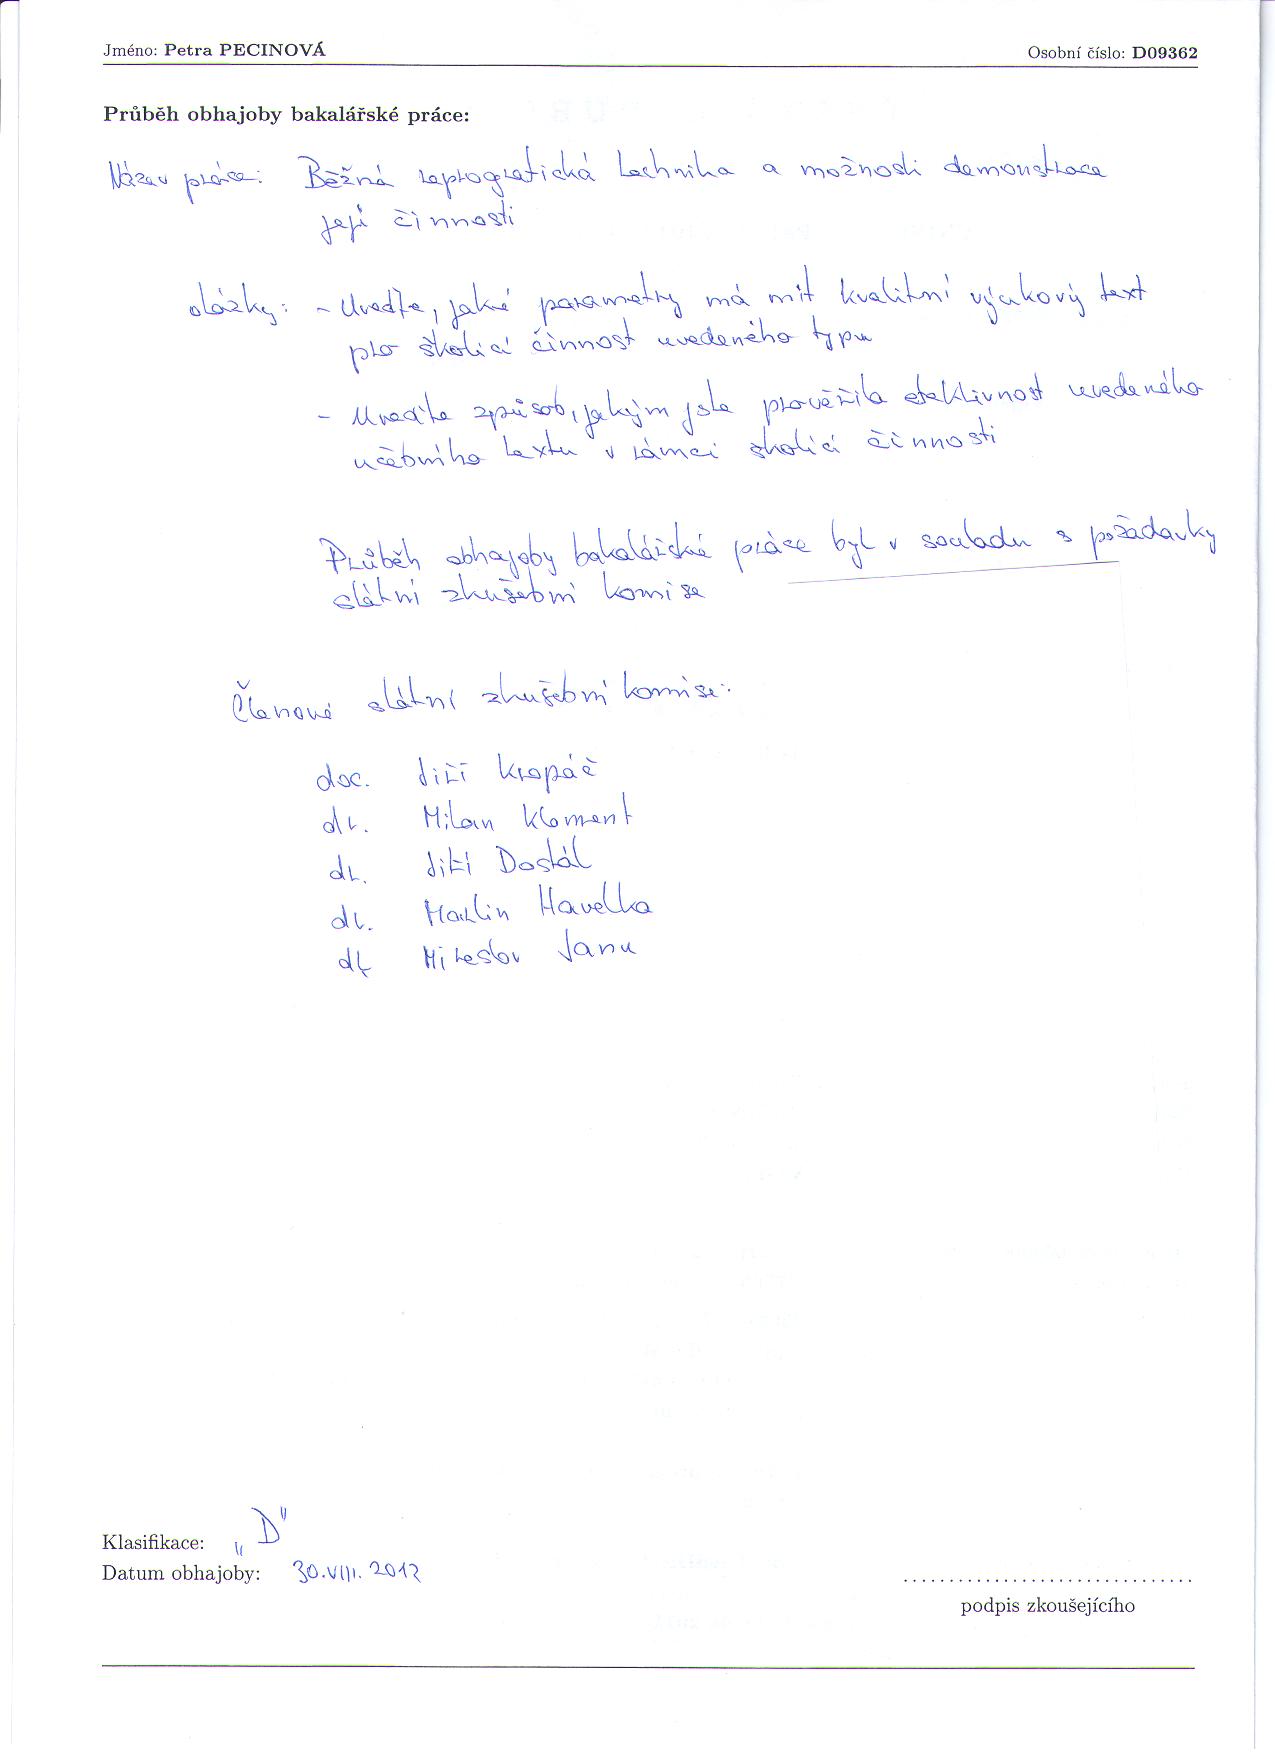 Jméno: Petra PECINOVÁ Osobní číslo: D09362
Průběh obhajoby bakalářské práce:
Název práce: Běžná reprografická technika a možnosti demonstrace
její činnosti
otázky: - Uveďte, jaké parametry má mít kvalitní výukový text
pro školicí činnost uvedeného typu
- Uveďte způsob, jakým jste prověřila efektivnost uvedeného
učebního textu v rámci školicí činnosti
Průběh obhajoby bakalářské práce byl v souladu s požadavky
státní zkušební komise
Členové státní zkušební komise:
doc. Jiří Kropáč
dr. Milan Klement
dr. Jiří Dostál
dr. Martin Havelka
dr. Miroslav Janu
Klasifikace: „D"
Datum obhajoby: 30.VIII. 2012
podpis zkoušejícího